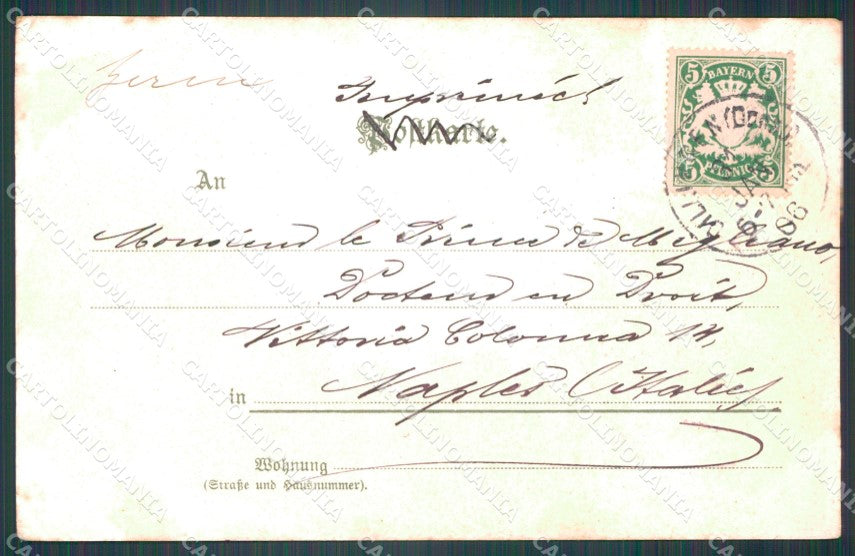 Imprimés
Postkarte.
5 BAYERN 5
5 PFENNIG 5
An
Monsieur le Prince de Migliano,
Docteur en Droit,
Vittoria Colonna 14,
in Naples (Italie)
Wohnung
(Straße und Hausnummer).
CARTOLINOMANIA